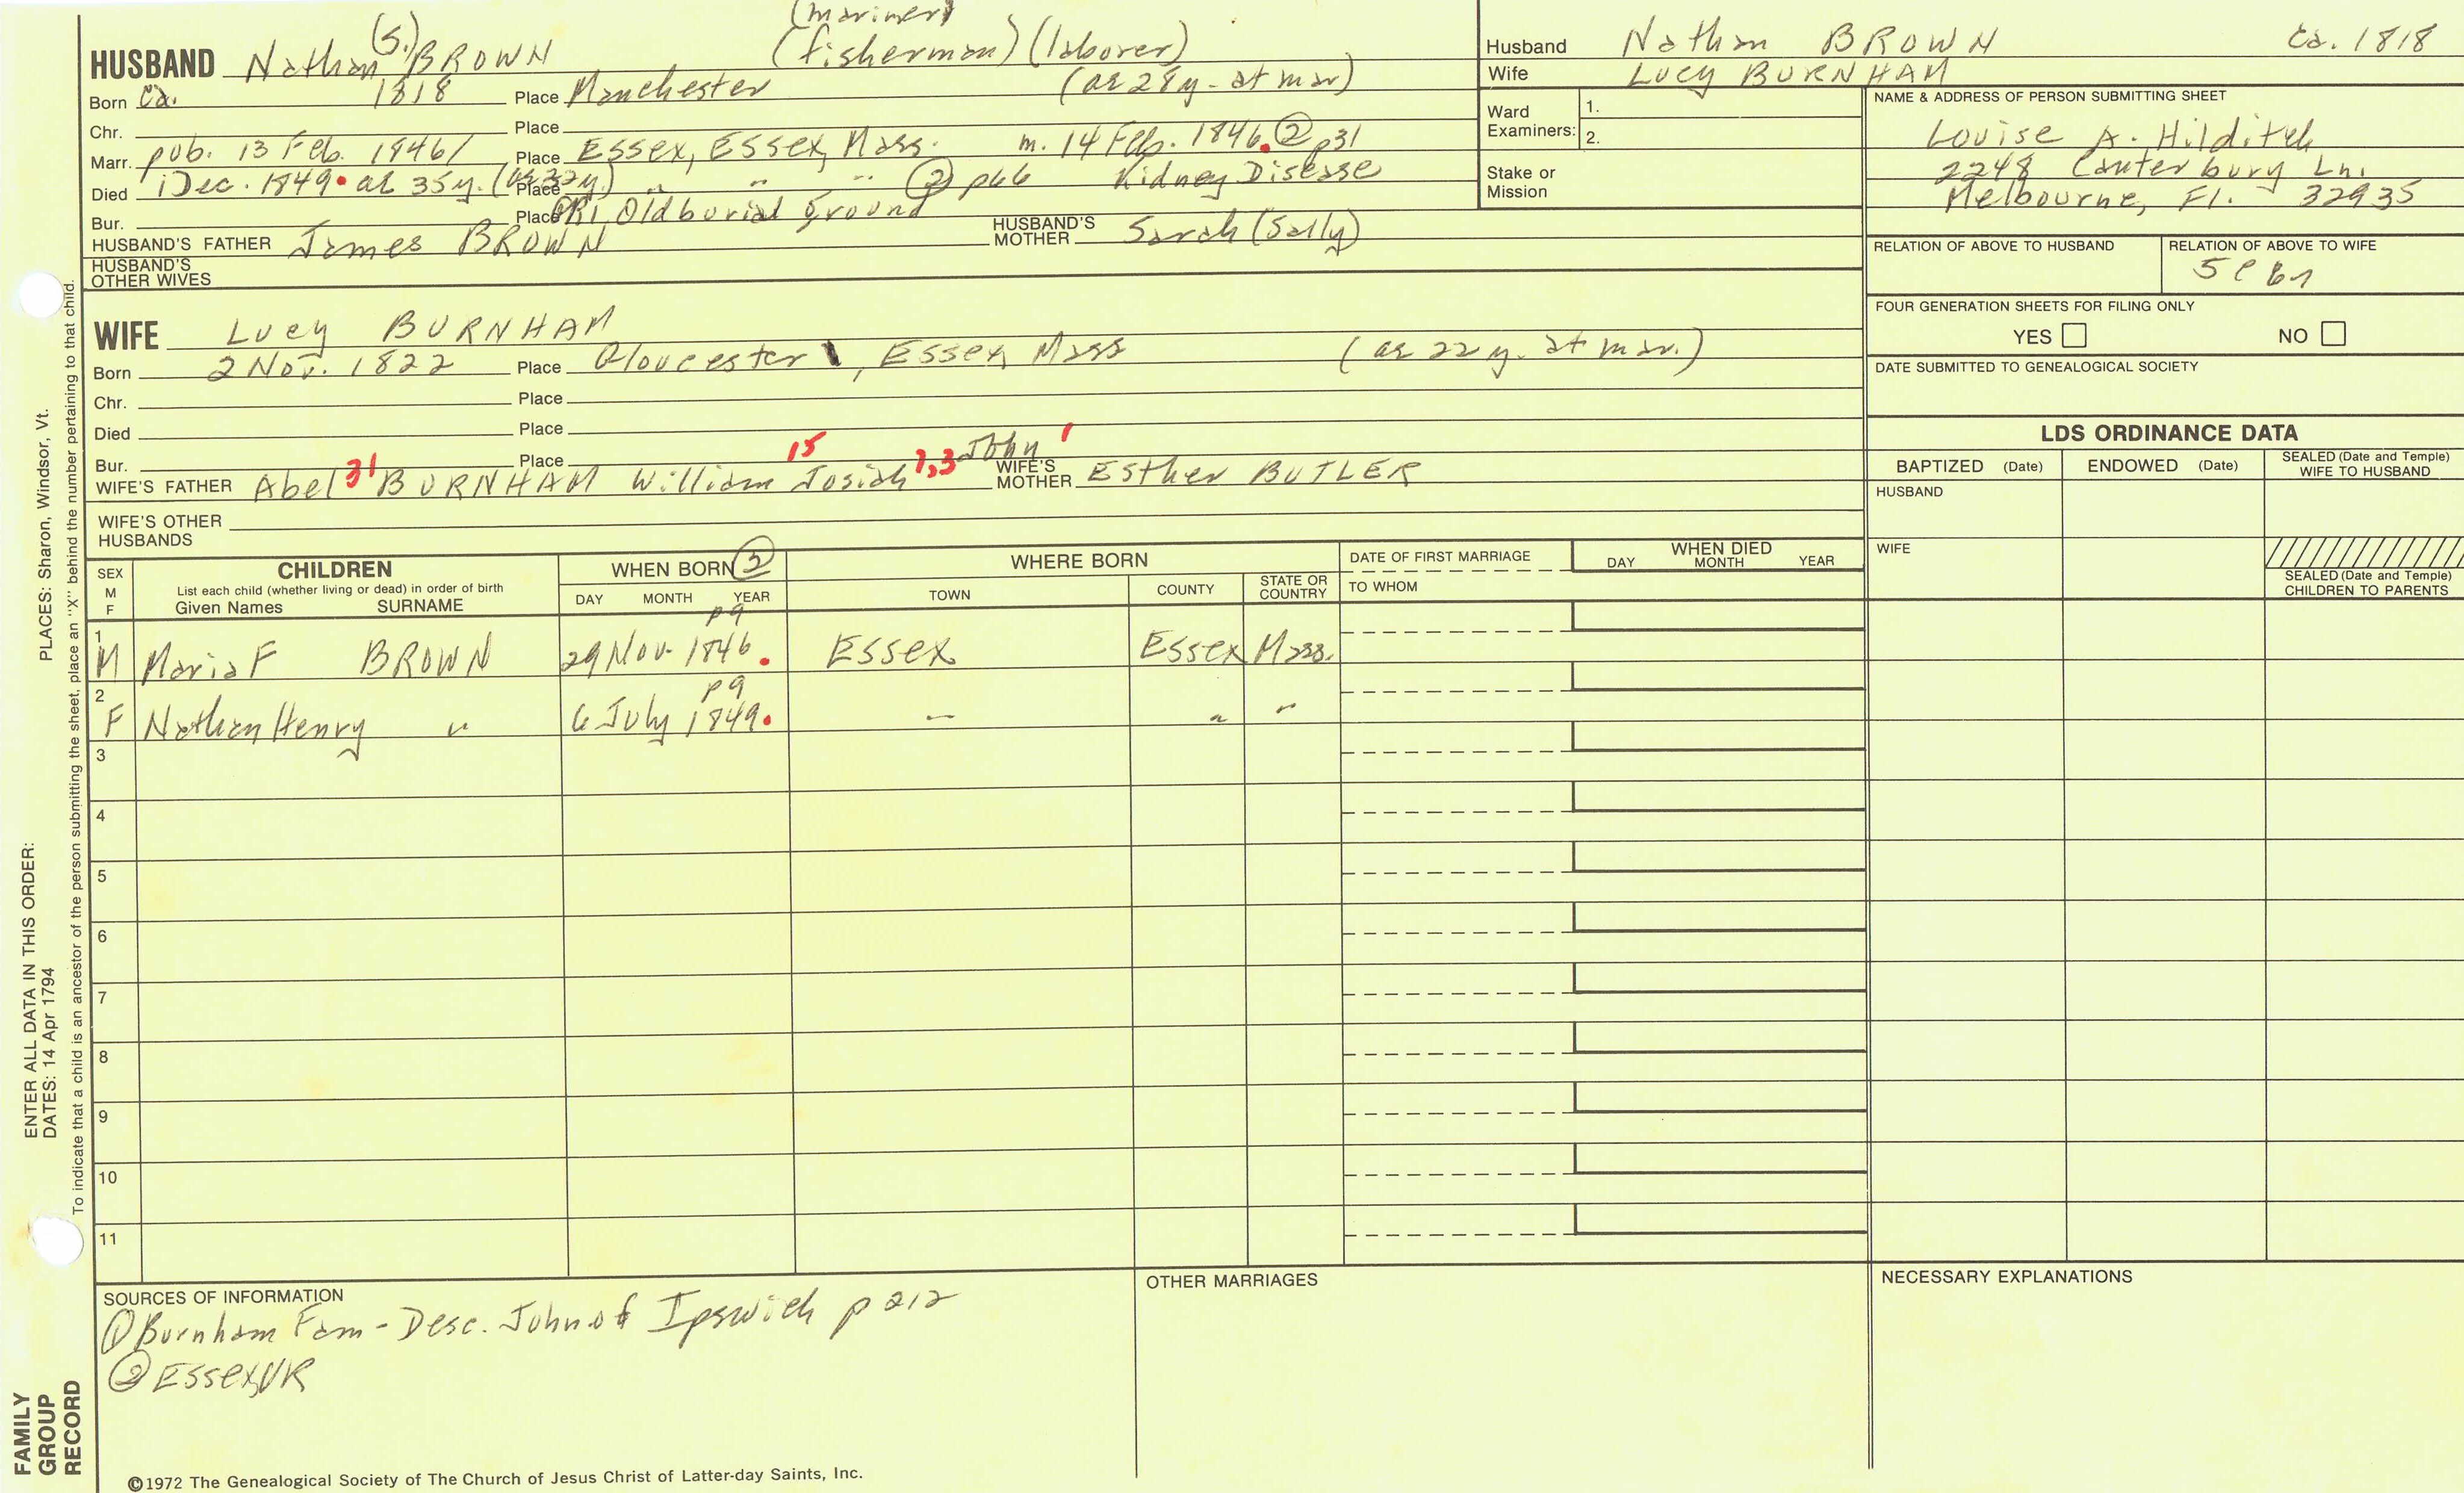 (mariner)
HUSBAND Nathan (S.) BROWN (fisherman) (laborer)
Born Ca. 1818 Place Manchester (ae 28y. at mar)
Chr. Place
Marr. pub. 13 Feb. 1846/ Place Essex, Essex, Mass. m. 14 Feb. 1846. ② p31
Died 1 Dec. 1849. ae 35y. (ae 32y.) Place " " " ② p66 Kidney Disease
Bur. Place GR1, Old burial ground
HUSBAND'S FATHER James BROWN HUSBAND'S MOTHER Sarah (Sally)
HUSBAND'S OTHER WIVES
WIFE Lucy BURNHAM
Born 2 Nov. 1822 Place Gloucester, Essex, Mass (ae 22 y. at mar.)
Chr. Place
Died Place
Bur. Place
WIFE'S FATHER Abel 31 BURNHAM William 15 Josiah 7,3 John 1 WIFE'S MOTHER Esther BUTLER
WIFE'S OTHER HUSBANDS
Husband Nathan BROWN Ca. 1818
Wife Lucy BURNHAM
Ward Examiners: 1.
2.
Stake or Mission
NAME & ADDRESS OF PERSON SUBMITTING SHEET
Louise A. Hilditch
2248 Canterbury Ln.
Melbourne, Fl. 32935
RELATION OF ABOVE TO HUSBAND RELATION OF ABOVE TO WIFE
5C6r
FOUR GENERATION SHEETS FOR FILING ONLY
YES NO
DATE SUBMITTED TO GENEALOGICAL SOCIETY
LDS ORDINANCE DATA
BAPTIZED (Date) ENDOWED (Date) SEALED (Date and Temple) WIFE TO HUSBAND
HUSBAND
WIFE
SEALED (Date and Temple) CHILDREN TO PARENTS
SEX M F CHILDREN WHEN BORN ② WHERE BORN DATE OF FIRST MARRIAGE WHEN DIED
List each child (whether living or dead) in order of birth
Given Names SURNAME DAY MONTH YEAR TOWN COUNTY STATE OR COUNTRY TO WHOM DAY MONTH YEAR
p9
1 M Maria F BROWN 29 Nov. 1846. Essex Essex Mass.
p9
2 F Nathan Henry " 6 July 1849. " " "
3
4
5
6
7
8
9
10
11
SOURCES OF INFORMATION
① Burnham Fam - Desc. John of Ipswich p 212
② Essex VR
OTHER MARRIAGES
NECESSARY EXPLANATIONS
©1972 The Genealogical Society of The Church of Jesus Christ of Latter-day Saints, Inc.
FAMILY GROUP RECORD
ENTER ALL DATA IN THIS ORDER:
DATES: 14 Apr 1794
PLACES: Sharon, Windsor, Vt.
To indicate that a child is an ancestor of the person submitting the sheet, place an "X" behind the number pertaining to that child.